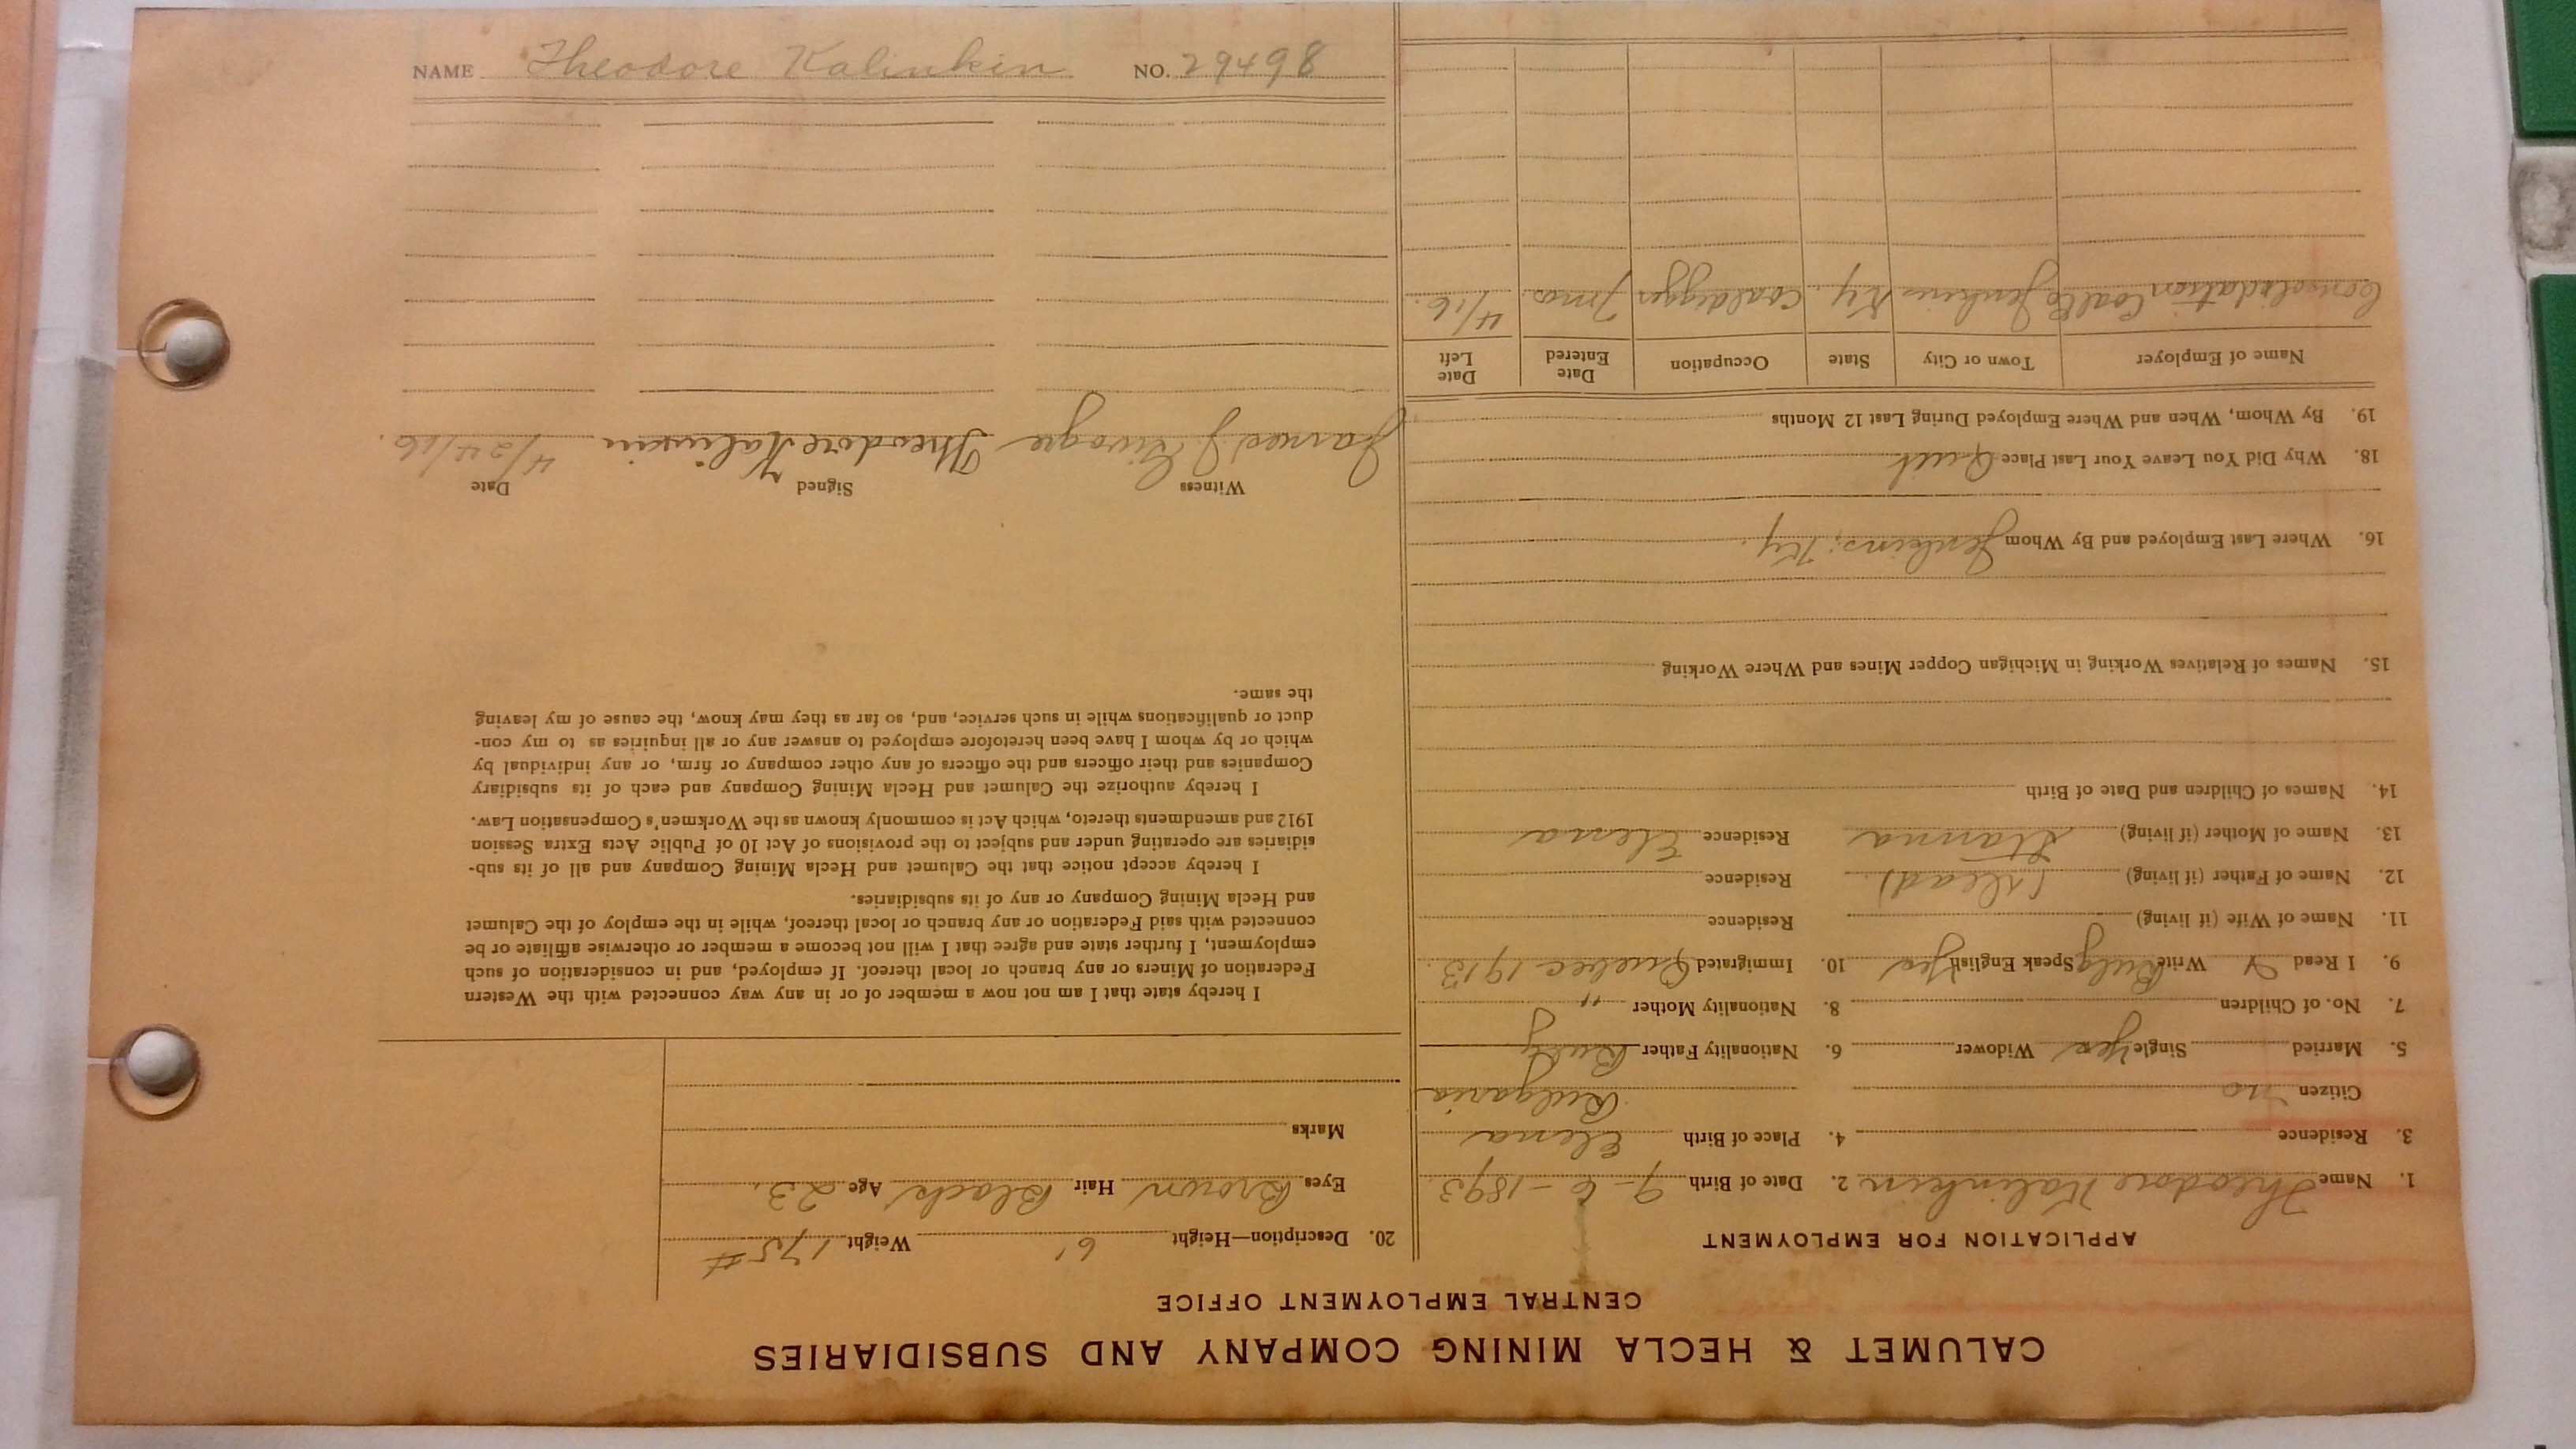 CALUMET & HECLA MINING COMPANY AND SUBSIDIARIES
CENTRAL EMPLOYMENT OFFICE
APPLICATION FOR EMPLOYMENT
1. Name Theodore Kalinkin 2. Date of Birth 9-6-1893
3. Residence 4. Place of Birth Elena
Citizen no Bulgaria
5. Married Single Yes Widower 6. Nationality Father Bulg
7. No. of Children 8. Nationality Mother "
9. I Read Y Write Bulg Speak English Yes 10. Immigrated Quebec 1913.
11. Name of Wife (if living) Residence
12. Name of Father (if living) (Dead) Residence
13. Name of Mother (if living) Stanna Residence Elena
14. Names of Children and Date of Birth
15. Names of Relatives Working in Michigan Copper Mines and Where Working
16. Where Last Employed and By Whom Jenkins, Ky.
18. Why Did You Leave Your Last Place Quit
19. By Whom, When and Where Employed During Last 12 Months
Name of Employer Town or City State Occupation Date Entered Date Left
Consolidation Coal Co Jenkins Ky. Coaldigger 7 mos. 4/16.
20. Description—Height 6' Weight 175#
Eyes Brown Hair Black Age 23.
Marks
I hereby state that I am not now a member of or in any way connected with the Western
Federation of Miners or any branch or local thereof. If employed, and in consideration of such
employment, I further state and agree that I will not become a member or otherwise affiliate or be
connected with said Federation or any branch or local thereof, while in the employ of the Calumet
and Hecla Mining Company or any of its subsidiaries.
I hereby accept notice that the Calumet and Hecla Mining Company and all of its sub-
sidiaries are operating under and subject to the provisions of Act 10 of Public Acts Extra Session
1912 and amendments thereto, which Act is commonly known as the Workmen's Compensation Law.
I hereby authorize the Calumet and Hecla Mining Company and each of its subsidiary
Companies and their officers and the officers of any other company or firm, or any individual by
which or by whom I have been heretofore employed to answer any or all inquiries as to my con-
duct or qualifications while in such service, and, so far as they may know, the cause of my leaving
the same.
Witness Signed Date
James J. Theodore Kalinkin 4/24/16.
NAME Theodore Kalinkin NO. 29498